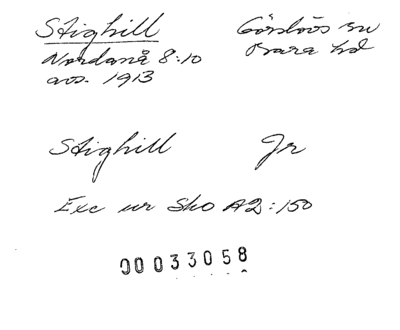 Stighill Görslövs sn
Nordanå 8:10 Bara hd
avs. 1913
Stighill Jr
Exc ur Sko A2:150
00033058